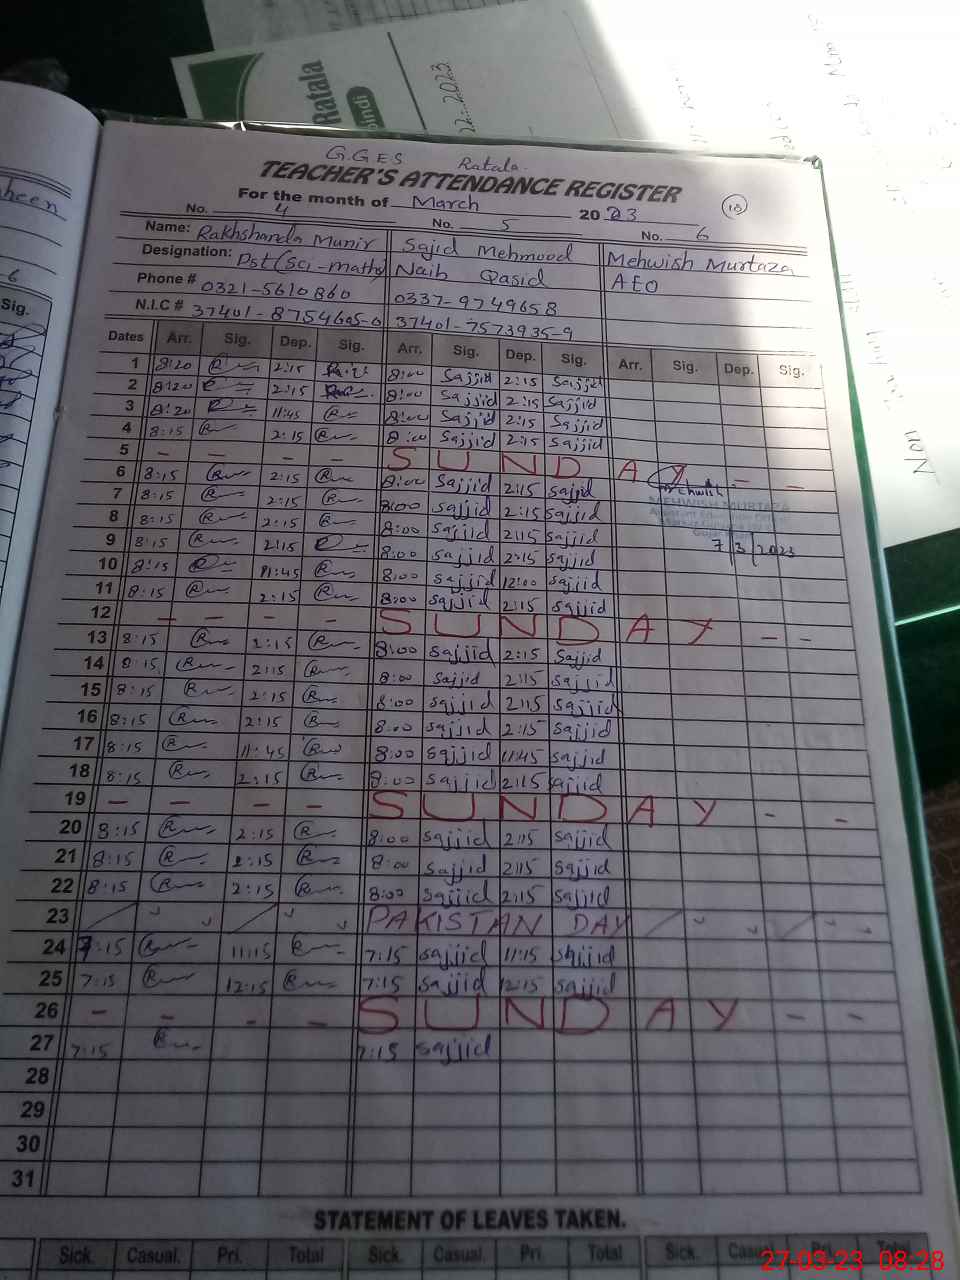 Ratala
22.2023
G.G.E.S Ratala.
TEACHER'S ATTENDANCE REGISTER
For the month of March 2023 18
No. 4 No. 5 No. 6
Name: Rakhshanda Munir Sajid Mehmood Mehwish Murtaza
Designation: Pst (Sci-math) Naib Qasid AEO
Phone # 0321-5610860 0337-9749658
N.I.C # 37401-8754605-0 37401-7573935-9
Dates Arr. Sig. Dep. Sig. Arr. Sig. Dep. Sig. Arr. Sig. Dep. Sig.
1 8:20 2:15 8:00 Sajjid 2:15 Sajjid
2 8:20 2:15 8:00 Sajjid 2:15 Sajjid
3 8:20 11:45 8:00 Sajjid 2:15 Sajjid
4 8:15 2:15 8:00 Sajjid 2:15 Sajjid
5 - - - - S U N D A Y - -
6 8:15 2:15 8:00 Sajjid 2:15 Sajjid Mehwish
7 8:15 2:15 8:00 Sajjid 2:15 Sajjid MEHWISH MURTAZA
8 8:15 2:15 8:00 Sajjid 2:15 Sajjid
9 8:15 2:15 8:00 Sajjid 2:15 Sajjid 7/3/2023
10 8:15 11:45 8:00 Sajjid 12:00 Sajjid
11 8:15 2:15 8:00 Sajjid 2:15 Sajjid
12 - - - - S U N D A Y - -
13 8:15 2:15 8:00 Sajjid 2:15 Sajjid
14 8:15 2:15 8:00 Sajjid 2:15 Sajjid
15 8:15 2:15 8:00 Sajjid 2:15 Sajjid
16 8:15 2:15 8:00 Sajjid 2:15 Sajjid
17 8:15 11:45 8:00 Sajjid 11:45 Sajjid
18 8:15 2:15 8:00 Sajjid 2:15 Sajjid
19 - - - - S U N D A Y - -
20 8:15 2:15 8:00 Sajjid 2:15 Sajjid
21 8:15 2:15 8:00 Sajjid 2:15 Sajjid
22 8:15 2:15 8:00 Sajjid 2:15 Sajjid
23 PAKISTAN DAY
24 7:15 11:15 7:15 Sajjid 11:15 Sajjid
25 7:15 12:15 7:15 Sajjid 12:15 Sajjid
26 - - - - S U N D A Y - -
27 7:15 7:15 Sajjid
28
29
30
31
STATEMENT OF LEAVES TAKEN.
Sick. Casual. Pri. Total Sick. Casual. Pri. Total Sick. Casual Pri. Total
27-03-23 08:28